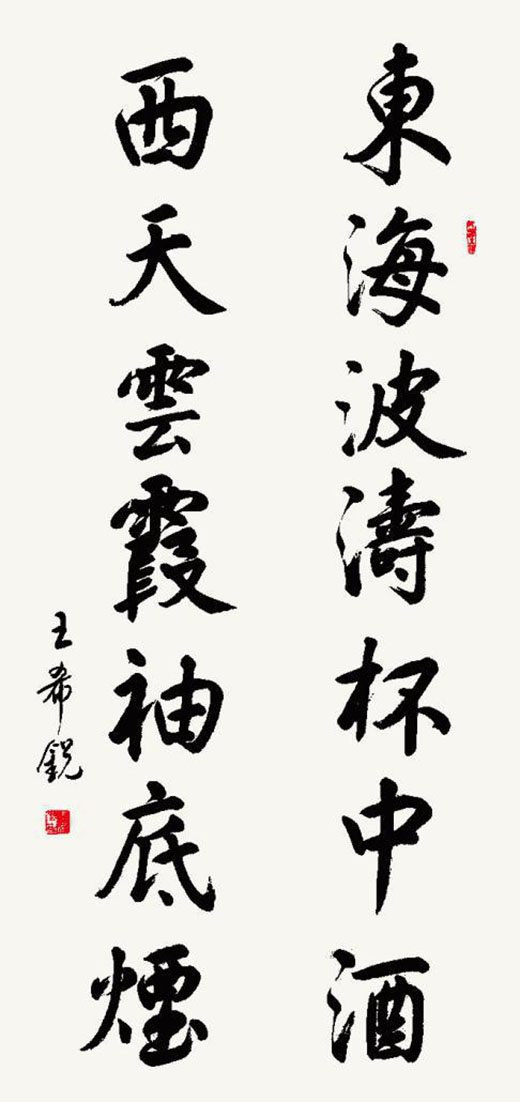 東海波濤杯中酒
西天雲霞袖底煙
王希銳